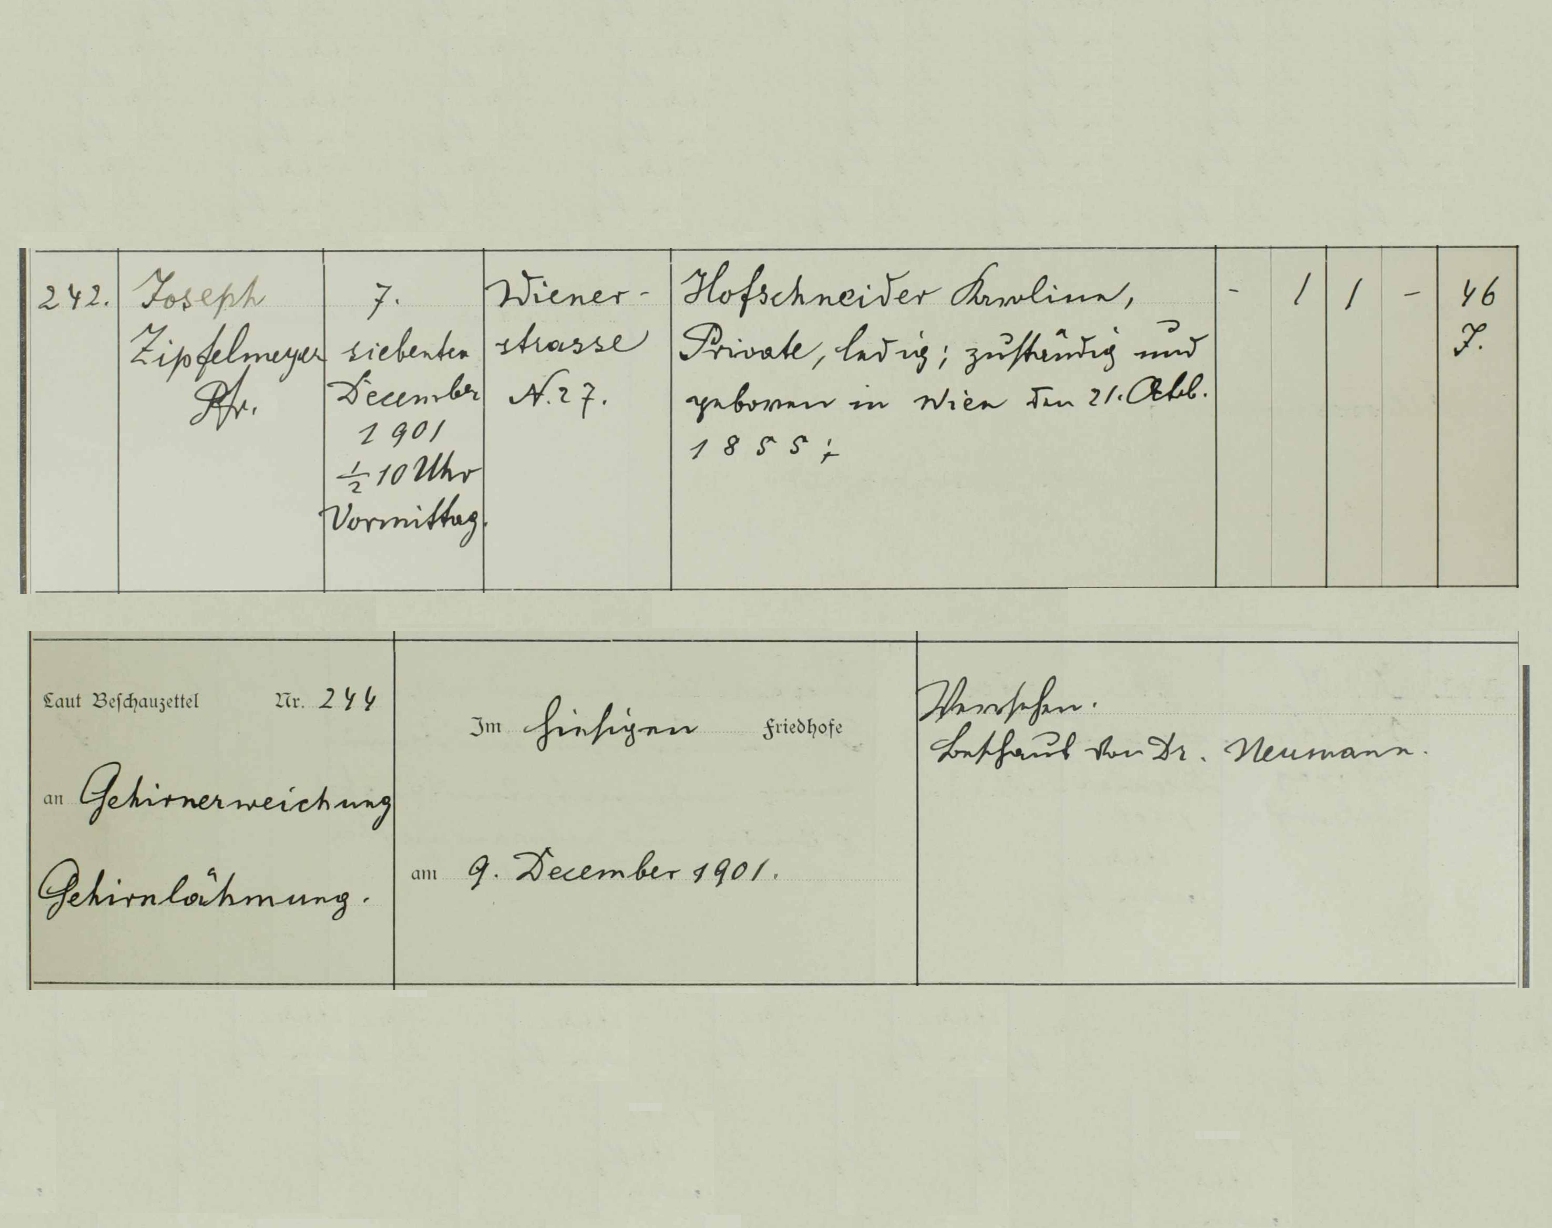 242.
Joseph
Zipfelmeyer
Pfr.
7.
siebenten
December
1901
½ 10 Uhr
Vormittag.
Wiener-
strasse
N. 27.
Hofschneider Karoline,
Private, ledig; zuständig und
geboren in Wien den 21. Octb.
1855;
- 1 1 -
46
J.
Laut Beschauzettel Nr. 244
an Gehirnerweichung
Gehirnlähmung.
Im hiesigen Friedhofe
am 9. December 1901.
Versehen.
Beschaut von Dr. Neumann.